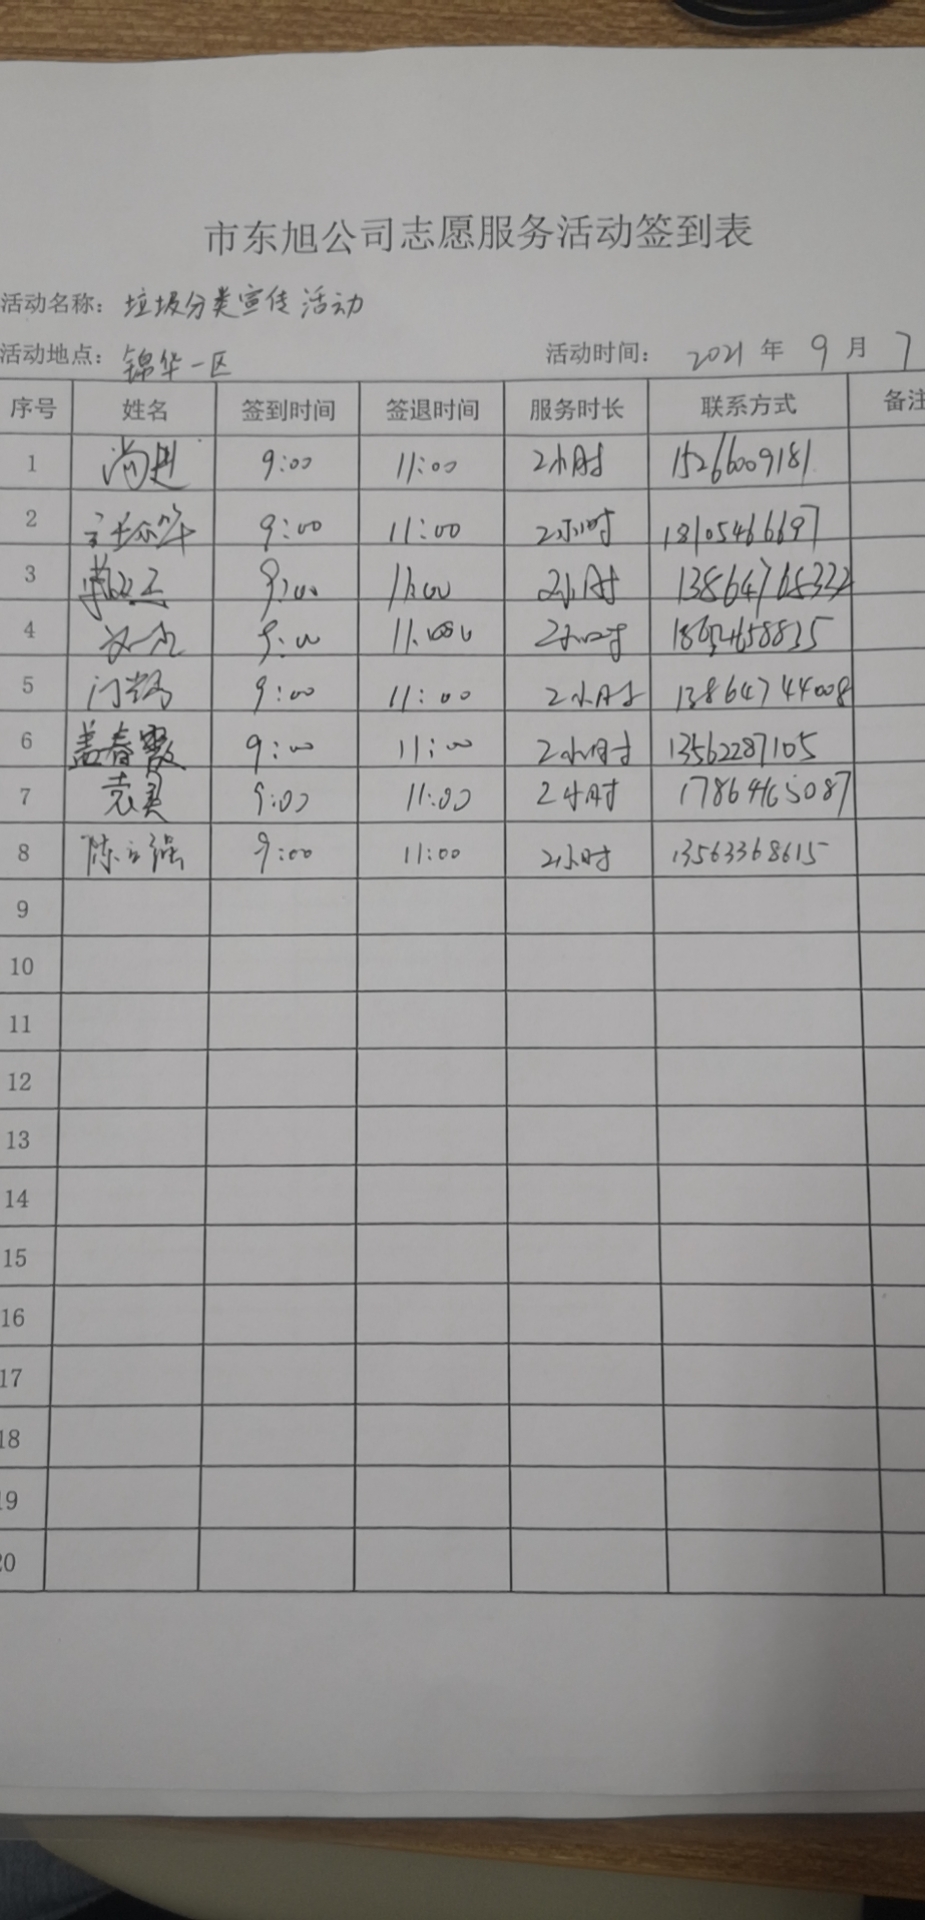 市东旭公司志愿服务活动签到表
活动名称: 垃圾分类宣传活动
活动地点: 锦华一区 活动时间: 2021 年 9 月 7
序号 姓名 签到时间 签退时间 服务时长 联系方式 备注
1 尚进 9:00 11:00 2小时 15266009181
2 9:00 11:00 2小时 18105466697
3 9:00 11:00 2小时 13864765332
4 9:00 11:00 2小时
5 9:00 11:00 2小时 13864744008
6 盖春霞 9:00 11:00 2小时 13562287105
7 袁昊 9:00 11:00 2小时 17864465087
8 陈立强 9:00 11:00 2小时 13563368615
9
10
11
12
13
14
15
16
17
18
19
20